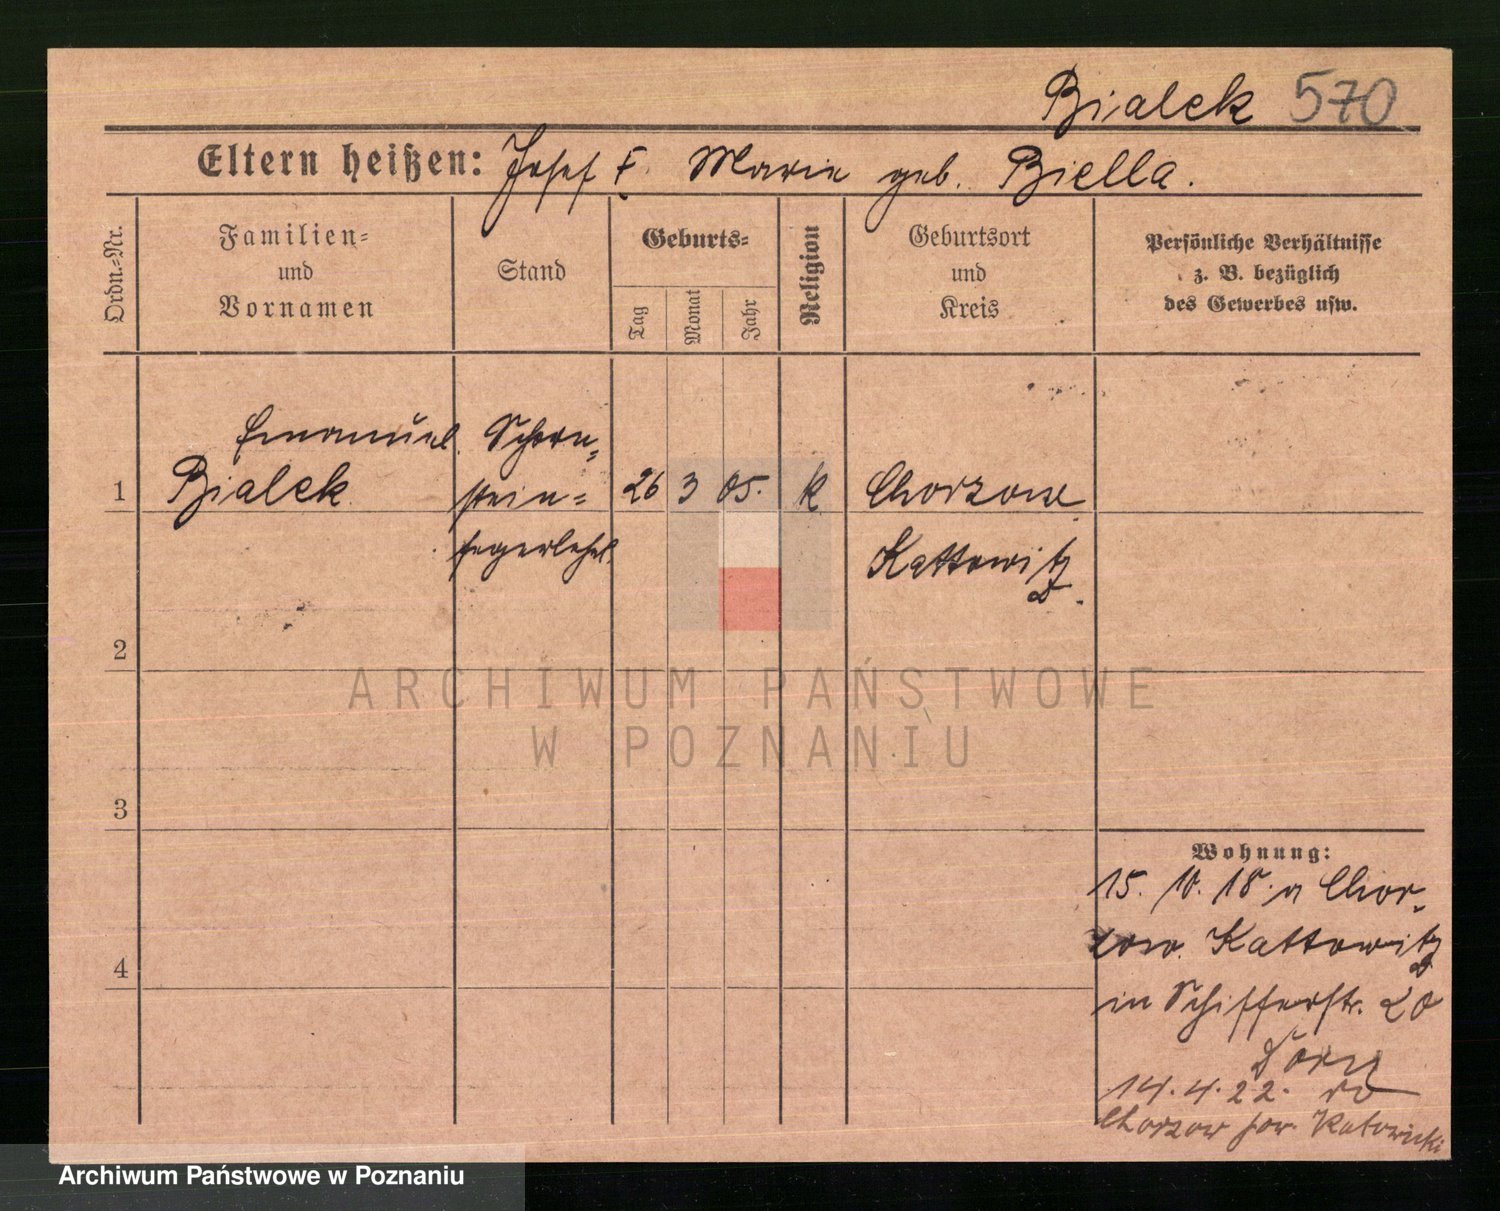 Bialek 570
Eltern heißen: Josef †. Marie geb. Biella.
Ordn.=Nr.
Familien=
und
Vornamen
Stand
Geburts=
Tag
Monat
Jahr
Religion
Geburtsort
und
Kreis
Persönliche Verhältnisse
z. B. bezüglich
des Gewerbes usw.
Emanuel Schorn=
1 Bialek stein= 26 3 05. k Chorzow
fegerlehrl. Kattowitz
2
3
4
Wohnung:
15. 10. 18. a Chor-
zow. Kattowitz
in Schifferstr. 20
14. 4. 22. do
Chorzow pow. Katowicki
ARCHIWUM PAŃSTWOWE
W POZNANIU
Archiwum Państwowe w Poznaniu